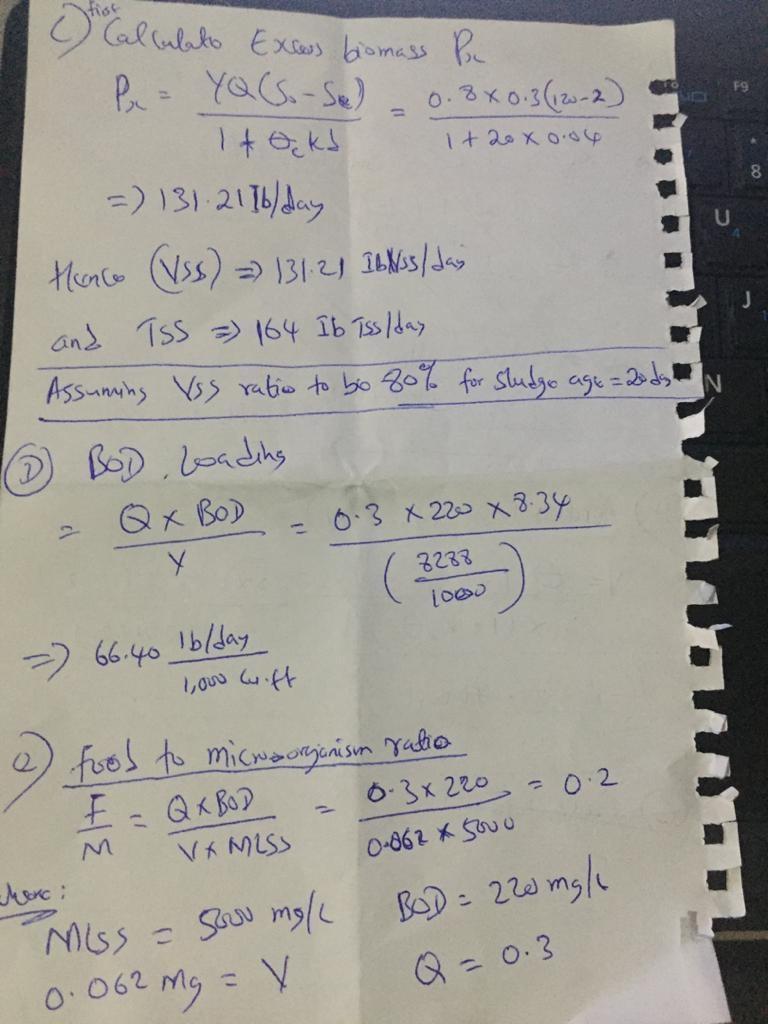 first
C) Calculate Excess biomass Px
Px = YQ(So - Se) / 1 + θc kd = 0.8 × 0.3(120-2) / 1 + 20 × 0.04
=> 131.21 Ib/day
Hence (VSS) => 131.21 Ib VSS/day
and TSS => 164 Ib TSS/day
Assuming VSS ratio to be 80% for sludge age = 20 ds
D) BOD Loading
= Q × BOD / V = 0.3 × 220 × 8.34 / (8288 / 1000)
=> 66.40 lb/day / 1,000 cu.ft
e) food to microorganism ratio
F/M = Q × BOD / V × MLSS = 0.3 × 220 / 0.062 × 5000 = 0.2
where:
MLSS = 5000 mg/L BOD = 220 mg/L
0.062 Mg = V Q = 0.3
F9
*
8
U
4
J
1
N